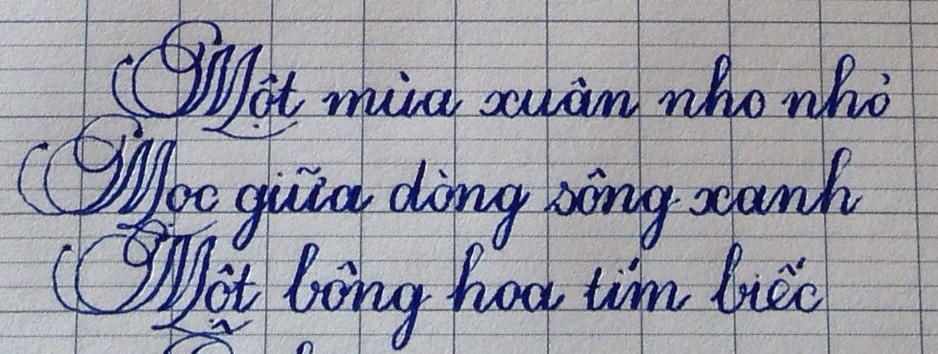 Một mùa xuân nho nhỏ
Mọc giữa dòng sông xanh
Một bông hoa tím biếc